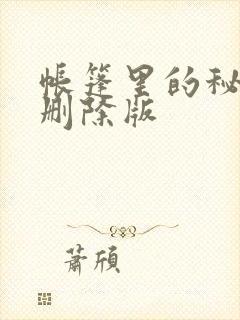 帐篷里的秘
删除版
萧颀